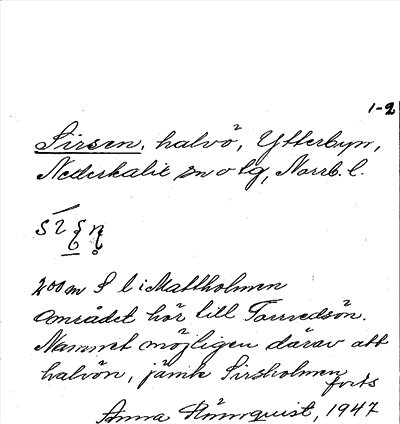 1-2
Sirsen, halvö, Ytterbyn,
Nederkalix sn o tg, Norrb. l.
200 m S l i Mattholmen
Området hör till Tornedsön.
Namnet möjligen därav att
halvön, jämte Sirsholmen
forts
Anna Rönnquist, 1947